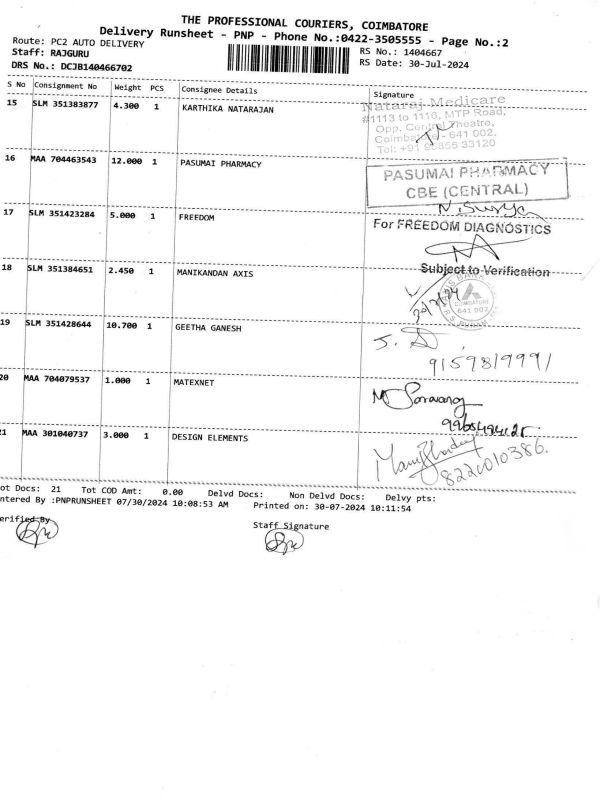 THE PROFESSIONAL COURIERS, COIMBATORE
Delivery Runsheet - PNP - Phone No.:0422-3505555 - Page No.:2
Route: PC2 AUTO DELIVERY
RS No.: 1404667
Staff: RAJGURU
RS Date: 30-Jul-2024
DRS No.: DCJB140466702
S No Consignment No Weight PCS Consignee Details Signature
15 SLM 351383877 4.300 1 KARTHIKA NATARAJAN
Nataraj Medicare
#1113 to 1116, MTP Road,
Opp. Central Theatre,
Coimbatore - 641 002.
Tel: +91 95855 33120
16 MAA 704463543 12.000 1 PASUMAI PHARMACY
PASUMAI PHARMACY
CBE (CENTRAL)
N. Surya
17 SLM 351423284 5.000 1 FREEDOM
For FREEDOM DIAGNOSTICS
18 SLM 351384651 2.450 1 MANIKANDAN AXIS
Subject to Verification
AXIS BANK
COIMBATORE
641 002
30/7/24
19 SLM 351428644 10.700 1 GEETHA GANESH
9159819991
20 MAA 704079537 1.000 1 MATEXNET
21 MAA 301040737 3.000 1 DESIGN ELEMENTS
8220010386.
ot Docs: 21 Tot COD Amt: 0.00 Delvd Docs: Non Delvd Docs: Delvy pts:
ntered By :PNPRUNSHEET 07/30/2024 10:08:53 AM Printed on: 30-07-2024 10:11:54
erified By
Staff Signature